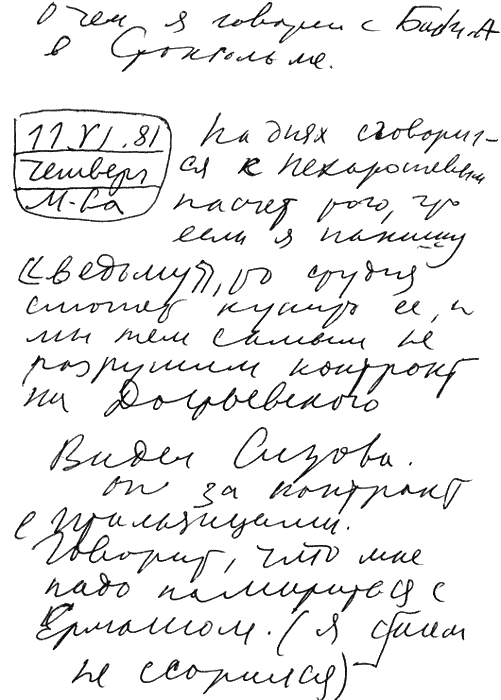 О чем я говорил с Биби А
в Стокгольме.
11.VI.81
Четверг
М-ва
На днях сговорил-
ся с Нехорошевым
насчет того, что
если я напишу
«Ведьму», то студия
сможет купить ее, и
мы тем самым не
разрушим контракт
на Достоевского
Видел Сизова.
Он за контракт
с итальянцами.
Говорит, что мне
надо помириться с
Ермашом. (я с ним
не ссорился)